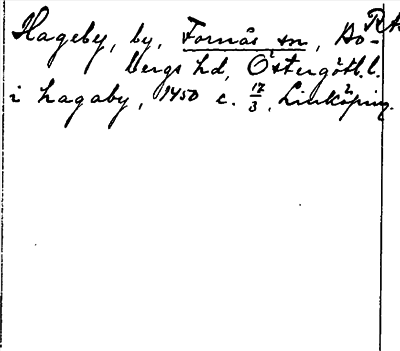 RA
Hageby, by, Fornåsa sn, Bo-
bergs hd, Östergötl. l.
i hagaby, 1450 c. 17/3, Linköping.